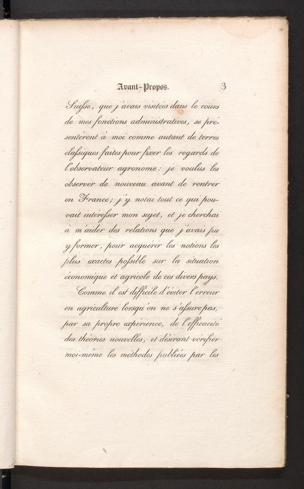 Avant-Propos. 3
Suisse, que j'avais visitées dans le cours
de mes fonctions administratives, se pré-
sentèrent à moi comme autant de terres
classiques faites pour fixer les regards de
l'observateur agronome : je voulus les
observer de nouveau avant de rentrer
en France ; j'y notai tout ce qui pou-
vait intéresser mon sujet, et je cherchai
à m'aider des relations que j'avais pu
y former, pour acquérir les notions les
plus exactes possible sur la situation
économique et agricole de ces divers pays.
Comme il est difficile d'éviter l'erreur
en agriculture lorsqu'on ne s'assure pas,
par sa propre expérience, de l'efficacité
des théories nouvelles, et désirant vérifier
moi-même les méthodes publiées par les